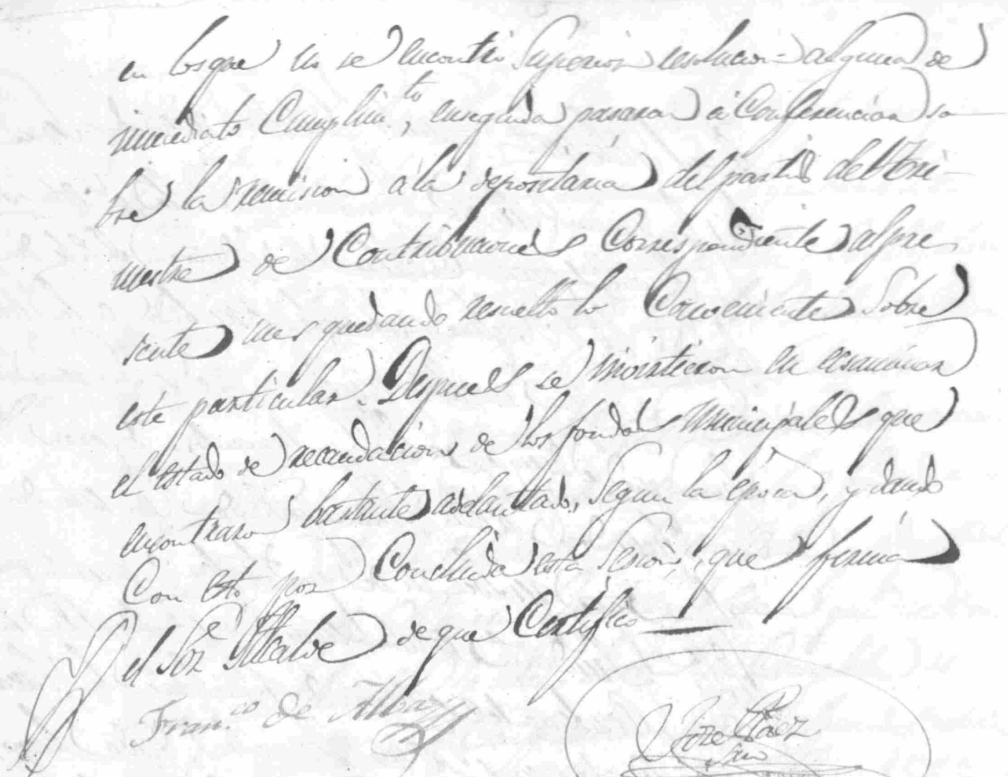 en los que no se encontró Superior resolucion alguna de
immediato Cumplimto, enseguida pasaron á Conferenciar so
bre la remision á la depositaria del partido del Tri-
mestre de Contribuciones Correspondiente al pre
sente mes quedando resuelto lo Conveniente Sobre
este particular. Despues se invirtieron en ecsaminar
el estado de recaudacion de los fondos Municipales que
encontraron bastante adelantado, segun la epoca, y dando
Con esto por Concluida esta Sesion, que firma
el Sor Alcalde de que Certifico
Franco de Alba
Jose Paez
Srio